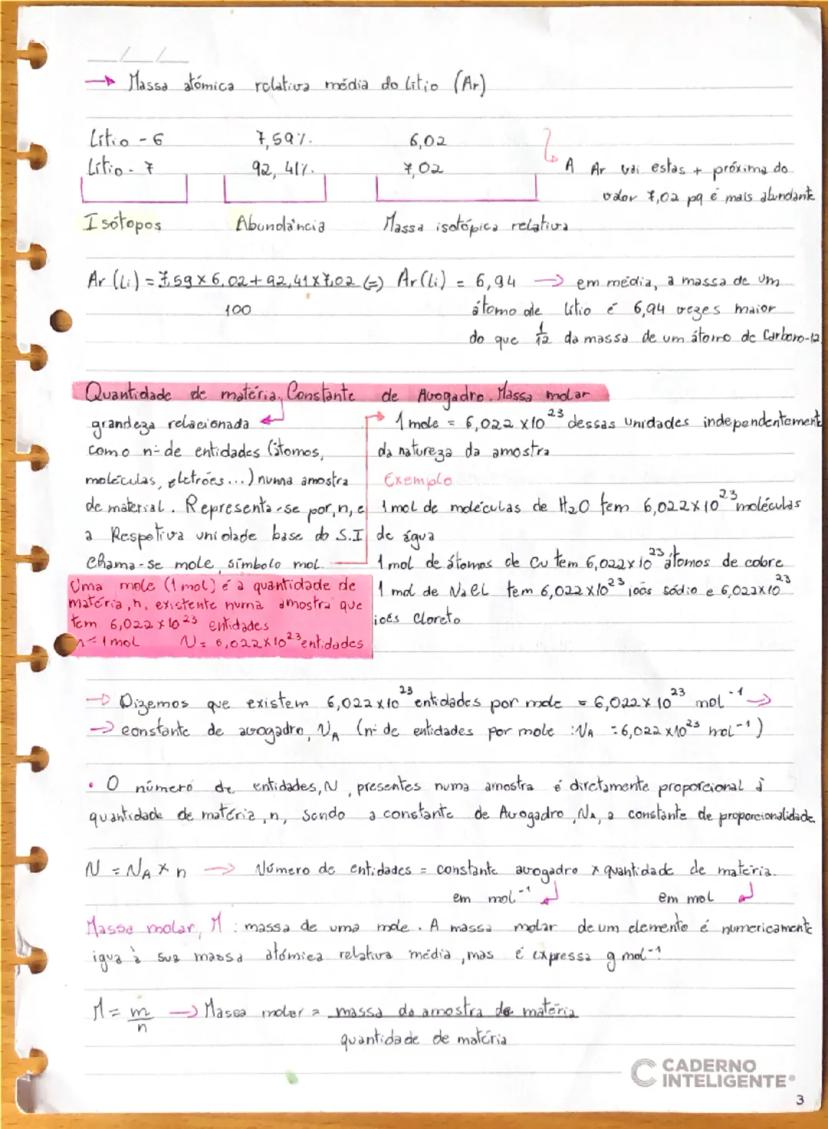 → Massa atómica relativa média do Lítio (Ar)
Lítio - 6 7,59% 6,02
Lítio - 7 92,41% 7,02 → A Ar vai estas + próxima do
valor 7,02 pq é mais abundante
Isótopos Abundância Massa isotópica relativa
Ar (Li) = 7,59 x 6,02 + 92,41 x 7,02 (=) Ar(Li) = 6,94 → em média, a massa de um
100 átomo de lítio é 6,94 vezes maior
do que 1/12 da massa de um átomo de Carbono-12
Quantidade de matéria, Constante de Avogadro. Massa molar
grandeza relacionada
como nº de entidades (átomos,
moléculas, eletrões...) numa amostra
de material. Representa-se por, n, e
a Respetiva unidade base do S.I
Chama-se mole, símbolo mol.
Uma mole (1 mol) é a quantidade de
matéria, n, existente numa amostra que
tem 6,022 x 10²³ entidades
n = 1 mol N = 6,022 x 10²³ entidades
→ 1 mole = 6,022 x 10²³ dessas unidades independentemente
da natureza da amostra
Exemplo
1 mol de moléculas de H2O tem 6,022 x 10²³ moléculas
de água
1 mol de átomos de Cu tem 6,022 x 10²³ átomos de cobre
1 mol de NaCl tem 6,022 x 10²³ iões sódio e 6,022 x 10²³
iões cloreto
→ Dizemos que existem 6,022 x 10²³ entidades por mole = 6,022 x 10²³ mol⁻¹ →
→ constante de avogadro, NA (nº de entidades por mole : NA = 6,022 x 10²³ mol⁻¹)
• O número de entidades, N, presentes numa amostra é diretamente proporcional à
quantidade de matéria, n, sendo a constante de Avogadro, NA, a constante de proporcionalidade
N = NA x n → Número de entidades = constante avogadro x quantidade de matéria.
em mol⁻¹ em mol
Massa molar, M : massa de uma mole. A massa molar de um elemento é numericamente
igua à sua massa atómica relativa média, mas é expressa g mol⁻¹.
M = m/n → Massa molar = massa da amostra de matéria
quantidade de matéria
CADERNO
INTELIGENTE®
3